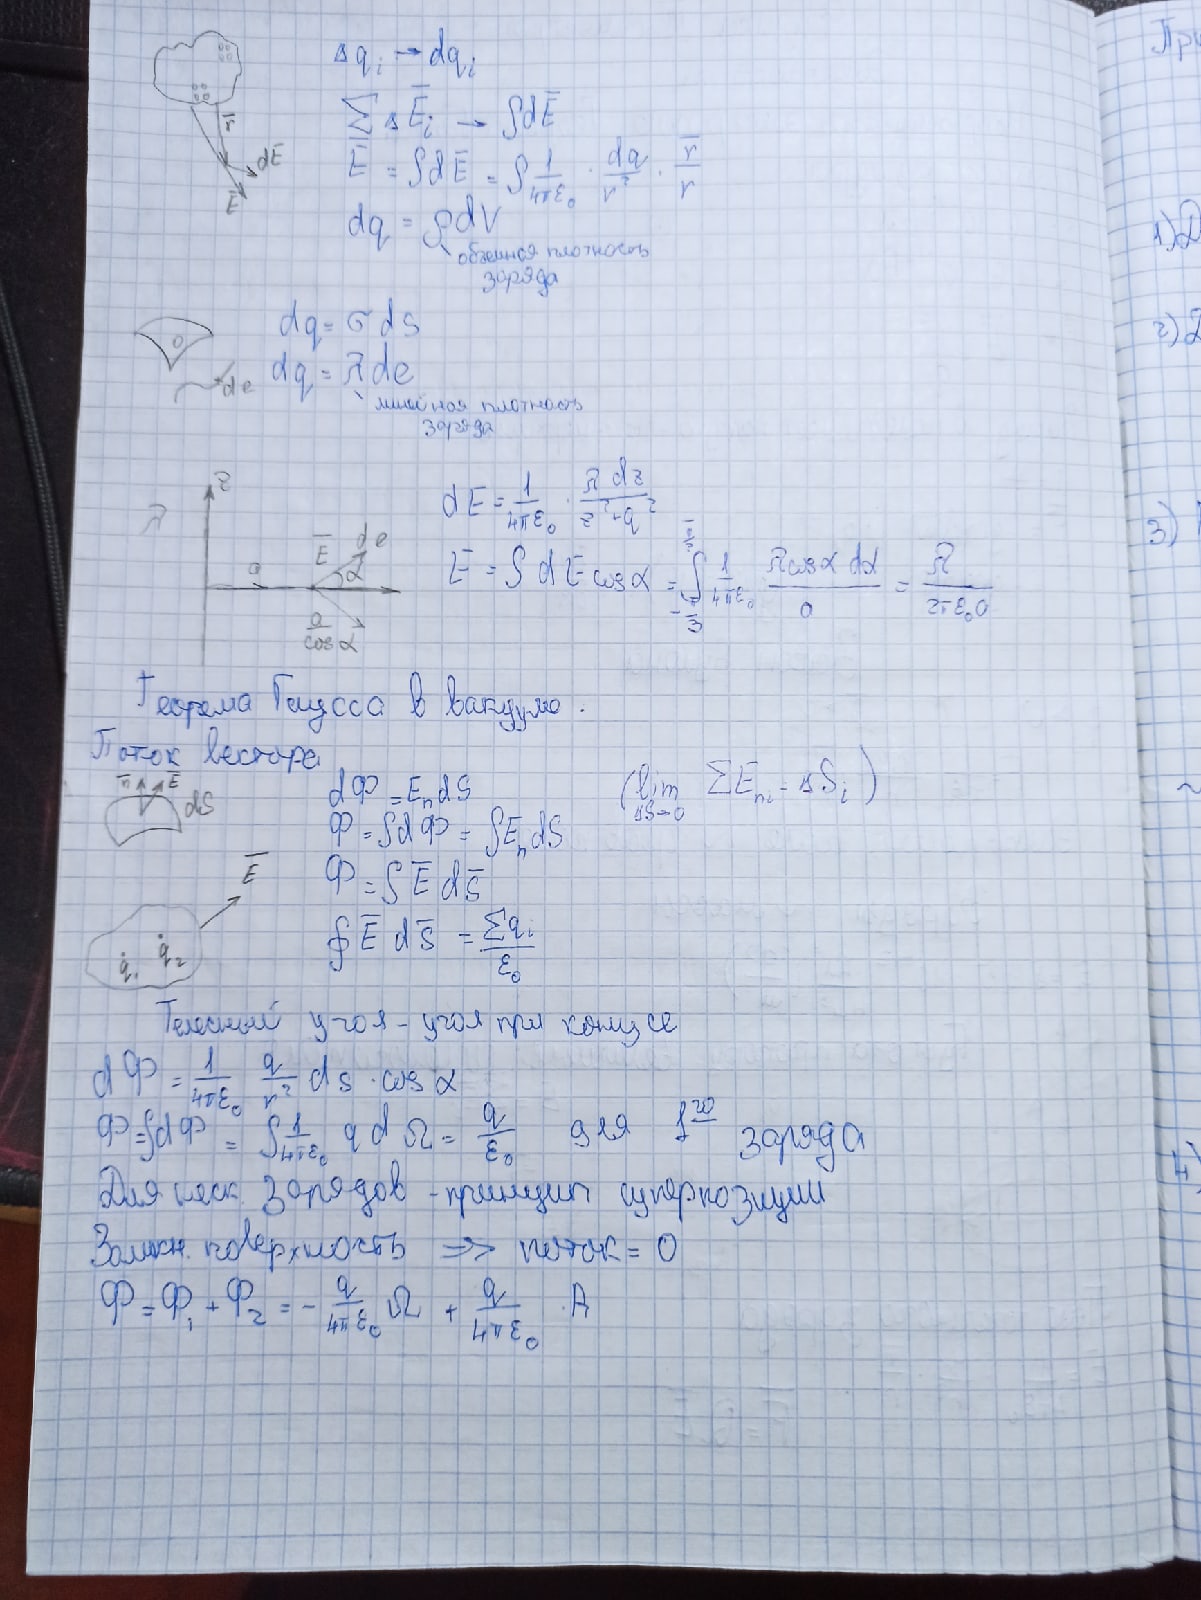 Δqᵢ → dqᵢ
Σ ΔE̅ᵢ → ∫dE̅
E̅ = ∫dE̅ = ∫ 1/4πε₀ · dq/r² · r̅/r
r̅
dE̅
E̅
dq = ρdV
объемная плотность
заряда
dq = σ ds
dq = λ de
de
линейная плотность
заряда
λ
z
a
E̅
de
α
a/cosα
dE = 1/4πε₀ · λ dz/z²+a²
E = ∫ dE cosα = ∫ 1/4πε₀ · λcosα dα/a = λ/2πε₀a
Теорема Гаусса в вакууме.
Поток вектора
n̅ E̅
dS
dΦ = Eₙ dS
(lim ΔS→0 ΣEₙᵢ · ΔSᵢ)
Φ = ∫dΦ = ∫Eₙ dS
Φ = ∫ E̅ dS̅
E̅
q₁ q₂
∮ E̅ dS̅ = Σqᵢ/ε₀
Телесный угол - угол при конусе
dΦ = 1/4πε₀ q/r² ds · cos α
Φ = ∫dΦ = ∫ 1/4πε₀ q d Ω = q/ε₀ для 1го заряда
Для неск. зарядов - принцип суперпозиции
Замкн. поверхность => поток = 0
Φ = Φ₁ + Φ₂ = - q/4πε₀ Ω + q/4πε₀ ·
1)
2)
3)
4)